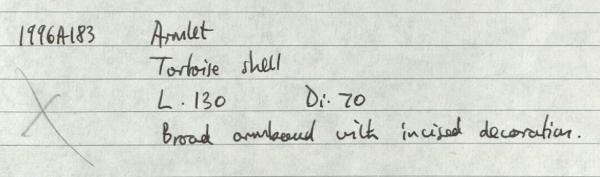 1996A183 Armlet
Tortoise shell
L. 130 Di. 70
Broad armband with incised decoration.